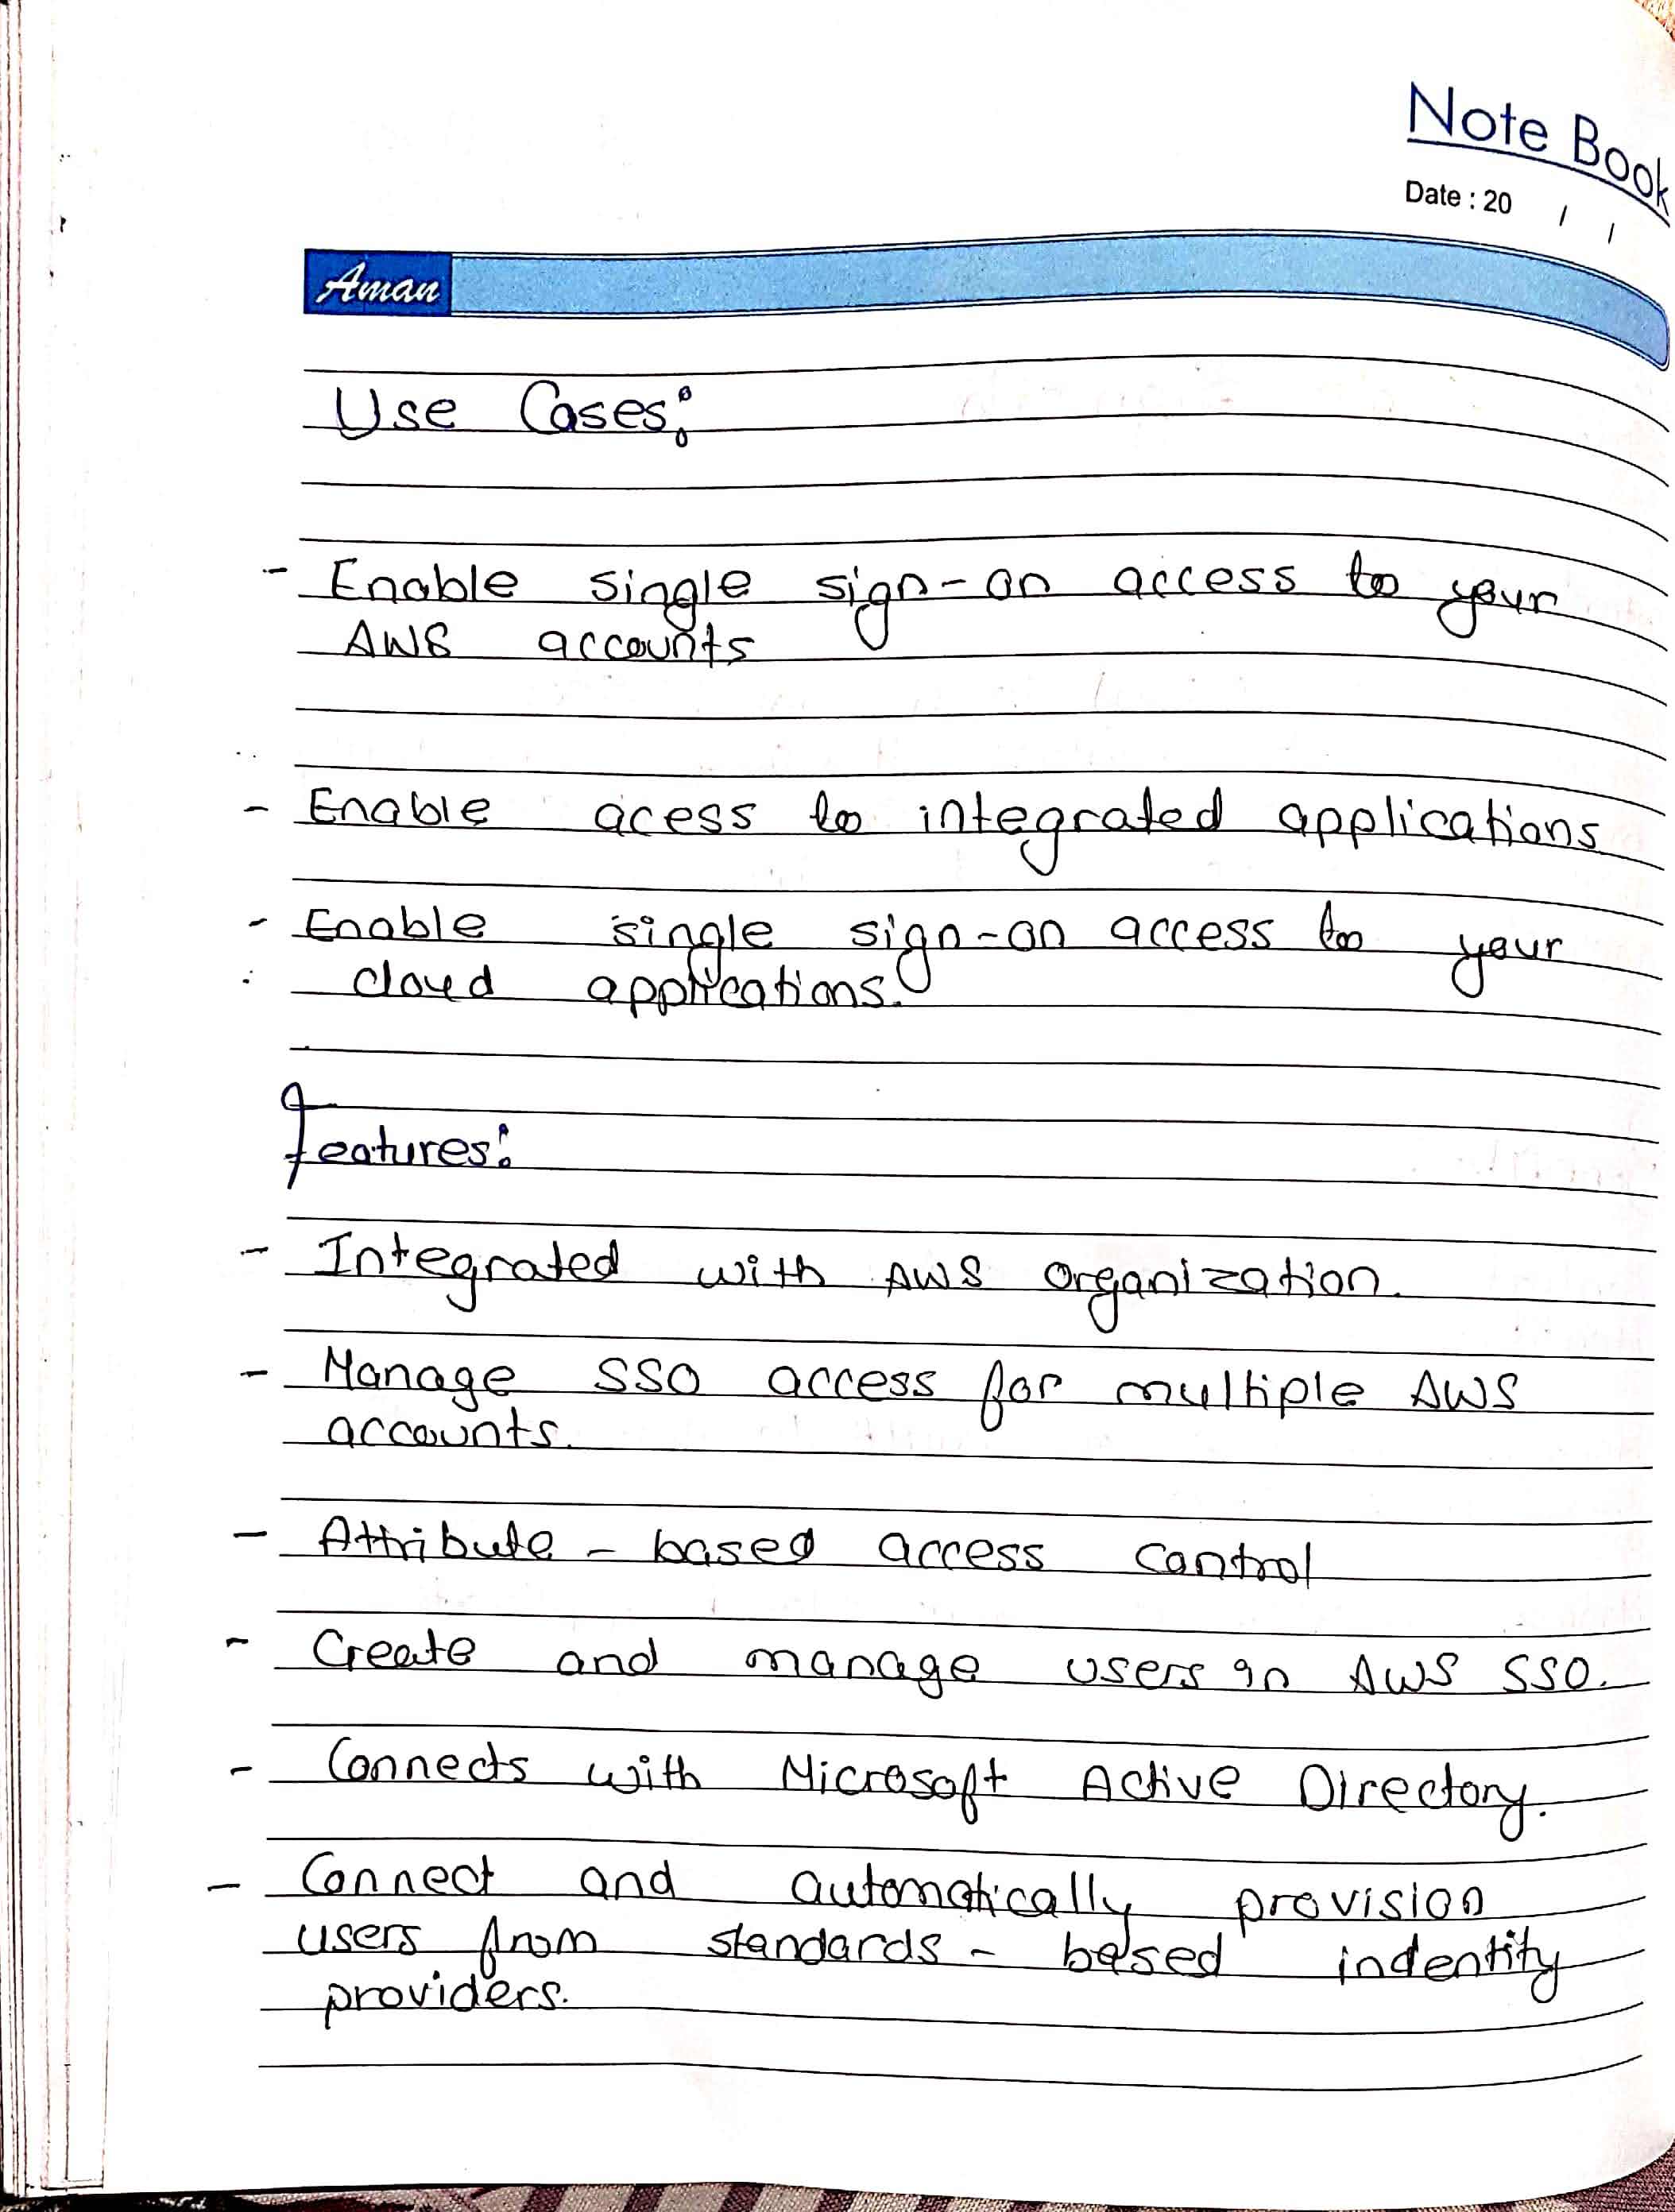 Note Book
Date : 20 / /
Aman
Use Cases:
- Enable single sign-on access to your
AWS accounts
- Enable acess to integrated applications
- Enable single sign-on access to your
cloud applications.
features:
- Integrated with AWS Organization.
- Manage SSO access for multiple AWS
accounts.
- Attribute - based access control
- Create and manage users in AWS SSO.
- Connects with Microsoft Active Directory.
- Connect and automatically provision
users from standards - based indentity
providers.